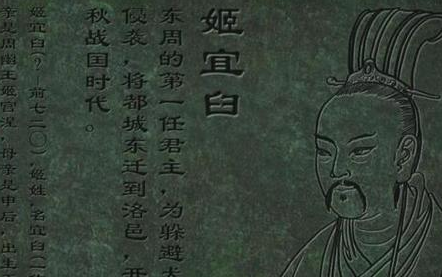 姬宜臼
东周的第一任君主，为躲避犬
侵袭，将都城东迁到洛邑，开
秋战国时代。
姬宜臼（？－前七二〇），姬姓，名宜臼（一
亲是周幽王姬宫涅，母亲是申后，出生